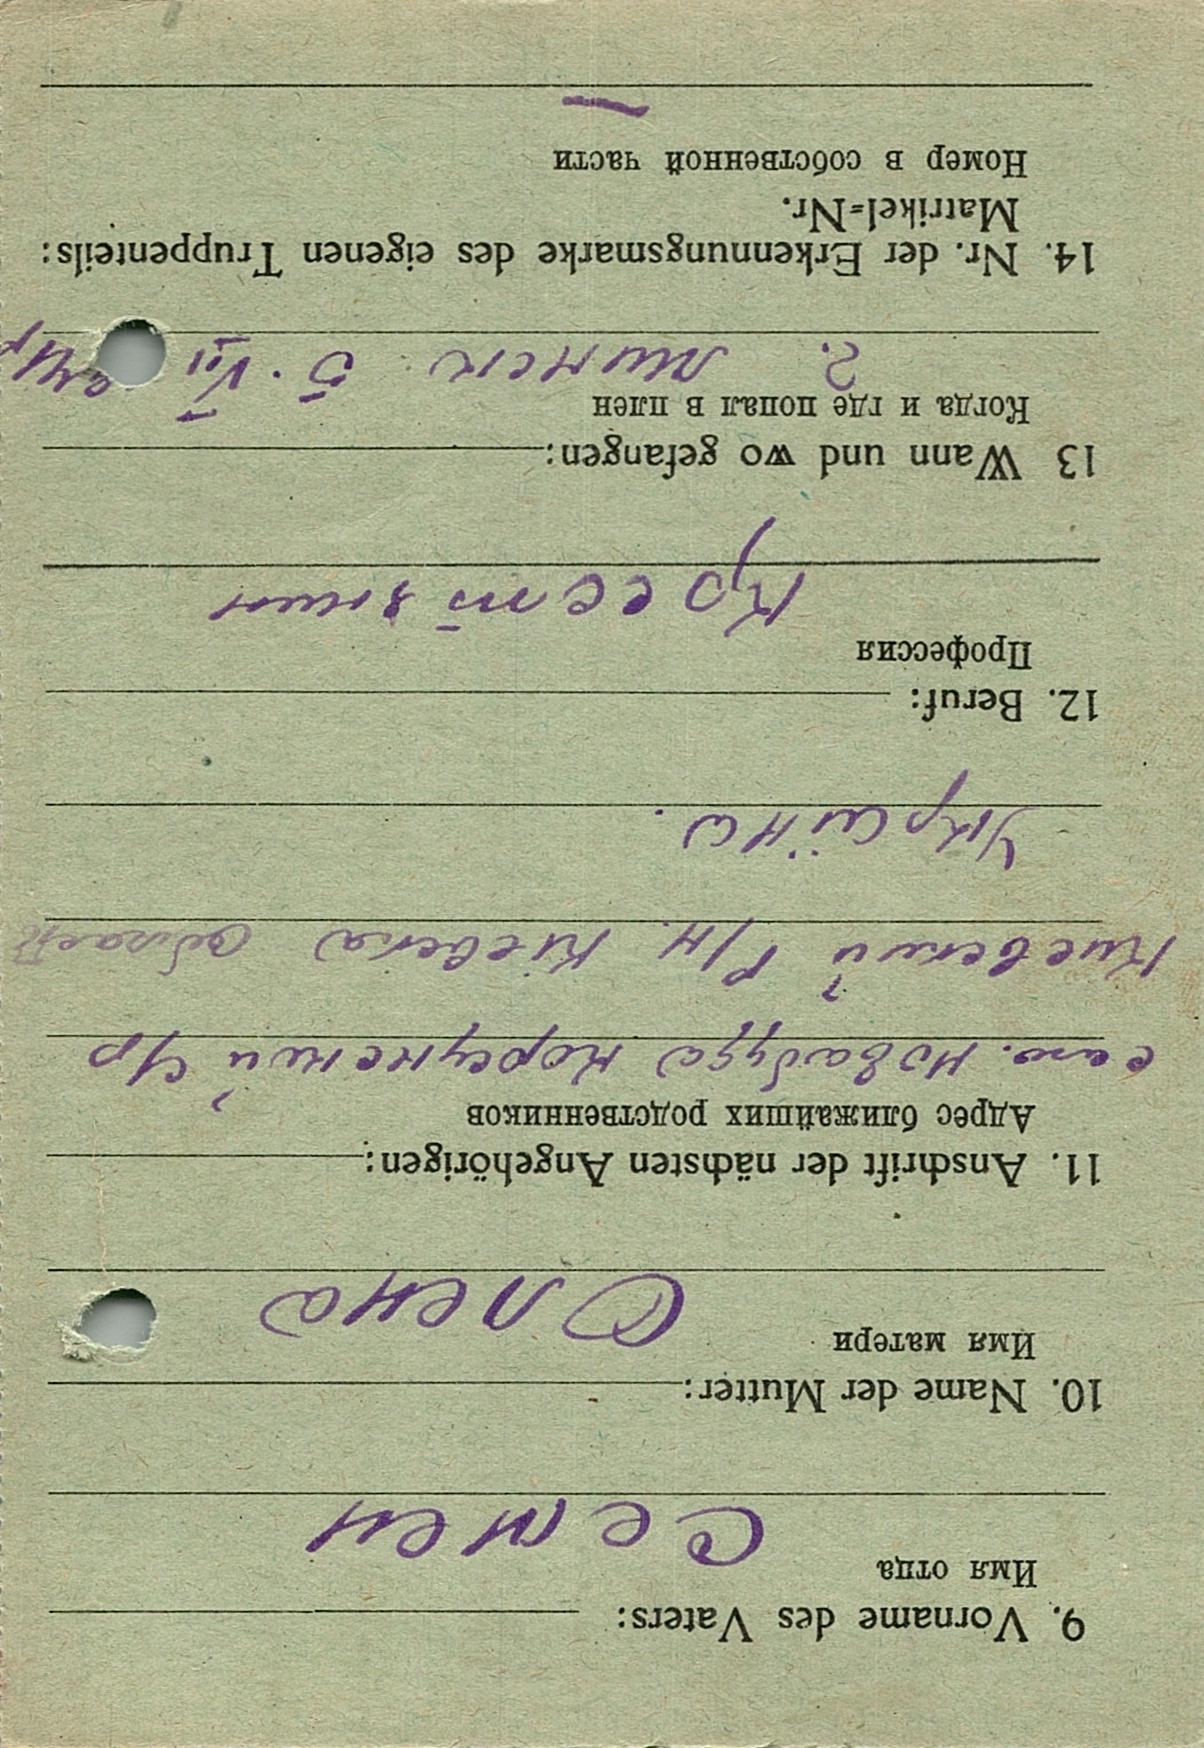 9. Vorname des Vaters:
Имя отца
Семен
10. Name der Mutter:
Имя матери
Олена
11. Anschrift der nächsten Angehörigen:
Адрес ближайших родственников
село. Новабуда Корсунский
Киевский Р/Н. Кіевска област
Україна.
12. Beruf:
Профессия
Крестянин
13 Wann und wo gefangen:
Когда и где попал в плен
г. Минск. 5. VII
14. Nr. der Erkennungsmarke des eigenen Truppenteils:
Matrikel=Nr.
Номер в собственной части
—